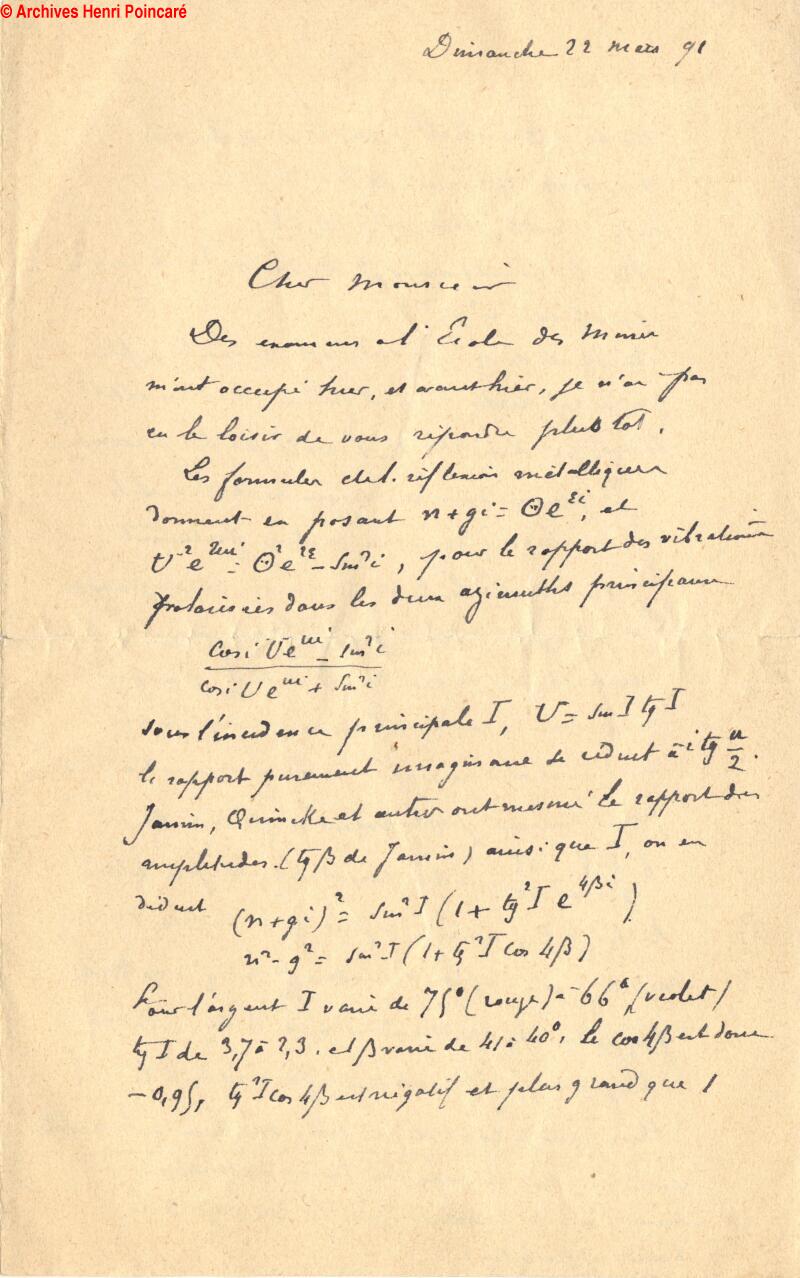 © Archives Henri Poincaré
Dimanche 22 mars 91
Cher Monsieur
Des examens à l'École des Mines
m'ont occupé hier, et avant hier, je n'ai pas
eu le loisir de vous répondre plus tôt.
Les formules de l. réflexion métallique
donnent en posant n + gi = Θe^{εi}, et
U² e^{2ui} = Θ² e^{2ε} - sin² i, pour le rapport des vibrations
polarisées dans les deux azimuths principaux
(cos i U e^{ui} - sin² i) / (cos i U e^{ui} + sin² i)
sous l'incidence principale I, U = sin I tg I
le rapport purement imaginaire se réduit à i tg u/2.
Jamin, Quincke et autres ont mesuré le rapport des
amplitudes (tg β de Jamin) ainsi que I, on en
déduit (n + gi)² = sin² I (1 + tg² I e^{4βi})
n² - g² = sin² I (1 + tg² I cos 4β)
Pour l'argent I varie de 75° (rouge) à 66° (violet)
tg I de 3,7 à 2,3. et β varie de 41 à 40°. le cos 4β est donc
- 0,95, tg² I cos 4β est négatif et plus grand que 1